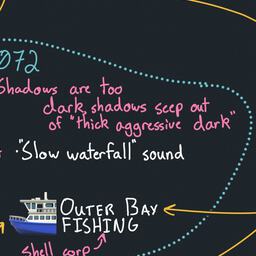 072
Shadows are too
dark, shadows seep out
of "thick aggressive dark"
"Slow waterfall" sound
OUTER BAY
FISHING
Shell corp